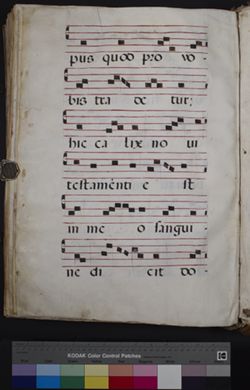 pus quod pro vo-
bis tra de tur;
hic ca lix no ui
testaménti e st
in me o sangui-
ne di cit do-
KODAK Color Control Patches